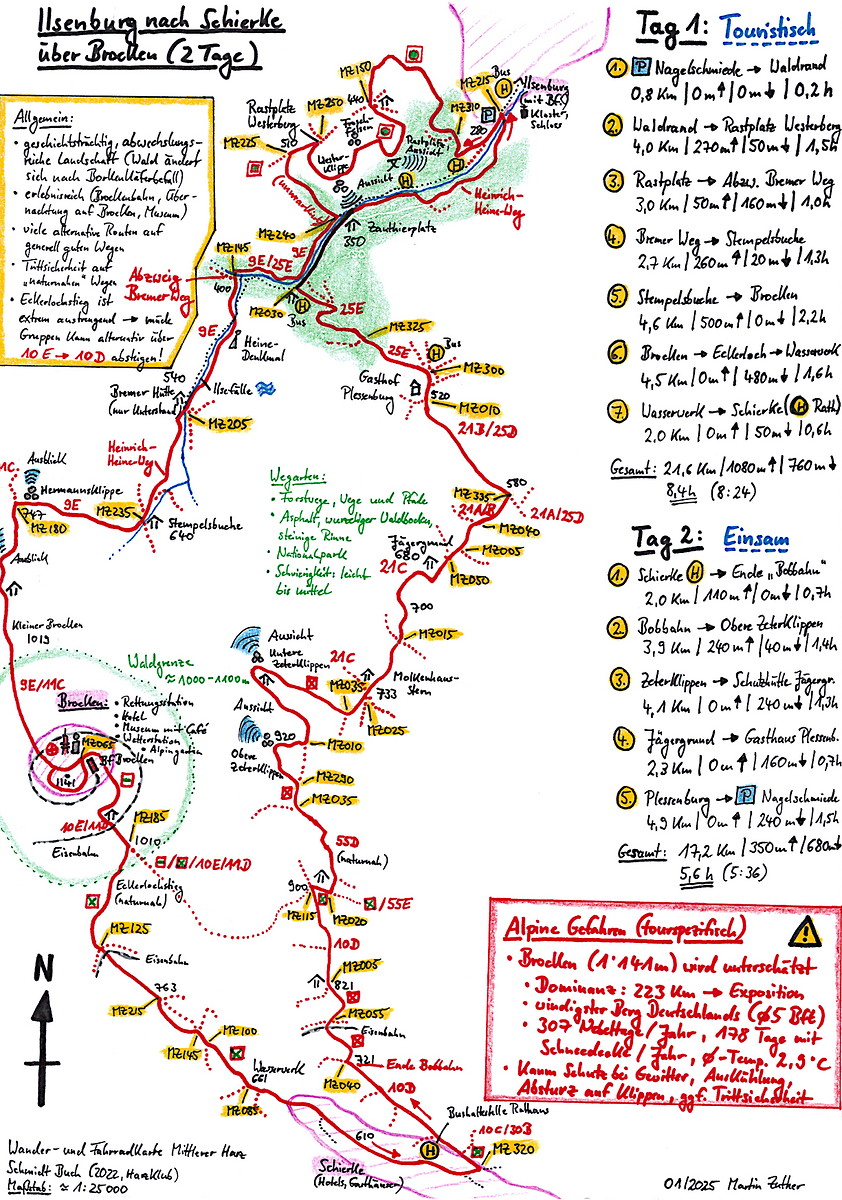 Ilsenburg nach Schierke
über Brocken (2 Tage)
Allgemein:
• geschichtsträchtig, abwechslungs-
reiche Landschaft (Wald ändert
sich nach Borkenkäferbefall)
• erlebnisreich (Brockenbahn, Über-
nachtung auf Brocken, Museum)
• viele alternative Routen auf
generell guten Wegen
• Trittsicherheit auf
"naturnahen" Wegen
• Eckerlochstieg ist
extrem anstrengend → müde
Gruppen kann alternativ über
10E → 10D absteigen!
Tag 1: Touristisch
1. P Nagelschmiede → Waldrand
0,8 Km | 0m↑ | 0m↓ | 0,2h
2. Waldrand → Rastplatz Westerberg
4,0 Km | 270m↑ | 50m↓ | 1,5h
3. Rastplatz → Abzw. Bremer Weg
3,0 Km | 50m↑ | 160m↓ | 1,0h
4. Bremer Weg → Stempelsbuche
2,7 Km | 260m↑ | 20m↓ | 1,3h
5. Stempelsbuche → Brocken
4,6 Km | 500m↑ | 0m↓ | 2,2h
6. Brocken → Eckerloch → Wasserwerk
4,5 Km | 0m↑ | 480m↓ | 1,6h
7. Wasserwerk → Schierke (H Rath)
2,0 Km | 0m↑ | 50m↓ | 0,6h
Gesamt: 21,6 Km | 1080m↑ | 760m↓
8,4h (8:24)
Tag 2: Einsam
1. Schierke H → Ende „Bobbahn"
2,0 Km | 110m↑ | 0m↓ | 0,7h
2. Bobbahn → Obere Zeterklippen
3,9 Km | 240m↑ | 40m↓ | 1,4h
3. Zeterklippen → Schutzhütte Jägergr.
4,1 Km | 0m↑ | 240m↓ | 1,3h
4. Jägergrund → Gasthaus Plessenb.
2,3 Km | 0m↑ | 160m↓ | 0,7h
5. Plessenburg → P Nagelschmiede
4,9 Km | 0m↑ | 240m↓ | 1,5h
Gesamt: 17,2 Km | 350m↑ | 680m↓
5,6h (5:36)
Alpine Gefahren (tourspezifisch)
• Brocken (1'141m) wird unterschätzt
• Dominanz: 223 Km → Exposition
• windigster Berg Deutschlands (ø5 Bft)
• 307 Nebeltage / Jahr, 178 Tage mit
Schneedecke / Jahr, ø-Temp. 2,9°C
• Kaum Schutz bei Gewitter, Auskühlung,
Absturz auf Klippen, ggf. Trittsicherheit
MZ150
440
MZ215
Bus
H
P
Ilsenburg
(mit Bf.)
Kloster,
Schloss
MZ310
280
Rastplatz
Westerberg
MZ250
MZ225
510
Froschfelsen
Westerklippe
Rastplatz
Aussicht
H
Aussicht
H
Heinrich-
Heine-Weg
(unmarkiert)
MZ240
Zanthierplatz
350
9E
MZ145
9E/25E
Abzweig
Bremer Weg
400
MZ030
H
Bus
25E
MZ325
25E
H
Bus
MZ300
Gasthof
Plessenburg
520
MZ010
21B/25D
9E
Heine-
Denkmal
540
Bremer Hütte
(nur Unterstand)
Ilsefälle
MZ205
Heinrich-
Heine-Weg
Wegarten:
• Forstwege, Wege und Pfade
• Asphalt, wurzeliger Waldboden,
steinige Rinne
• Nationalpark
• Schwierigkeit: leicht
bis mittel
11C
Ausblick
Hermannsklippe
9E
MZ235
747
MZ180
Stempelsbuche
640
Ausblick
580
MZ335
21A/B
21A/25D
MZ040
Jägergrund
680
MZ005
21C
MZ050
700
MZ015
Kleiner Brocken
1019
Waldgrenze
≈1000-1100m
Aussicht
Untere
Zeterklippen
21C
MZ035
Molkenhaus-
stern
733
MZ025
9E/11C
Brocken:
• Rettungsstation
• Hotel
• Museum mit Café
• Wetterstation
• Alpingarten
MZ065
Bf Brocken
1141
Aussicht
920
MZ010
Obere
Zeterklippen
MZ290
MZ035
10E/11D
MZ185
1010
Eisenbahn
55D
(naturnah)
/10E/11D
Eckerlochstieg
(naturnah)
900
/55E
MZ115
MZ020
MZ125
10D
Eisenbahn
MZ005
821
763
MZ215
MZ055
Eisenbahn
MZ100
MZ145
721
Ende Bobbahn
Wasserwerk
661
MZ040
10D
MZ085
Bushaltestelle Rathaus
10C/30B
610
H
MZ320
Schierke
(Hotels, Gasthäuser)
N
Wander- und Fahrradkarte Mittlerer Harz
Schmidt Buch (2022, Harzklub)
Maßstab: ≈ 1:25000
01/2025 Martin Zother